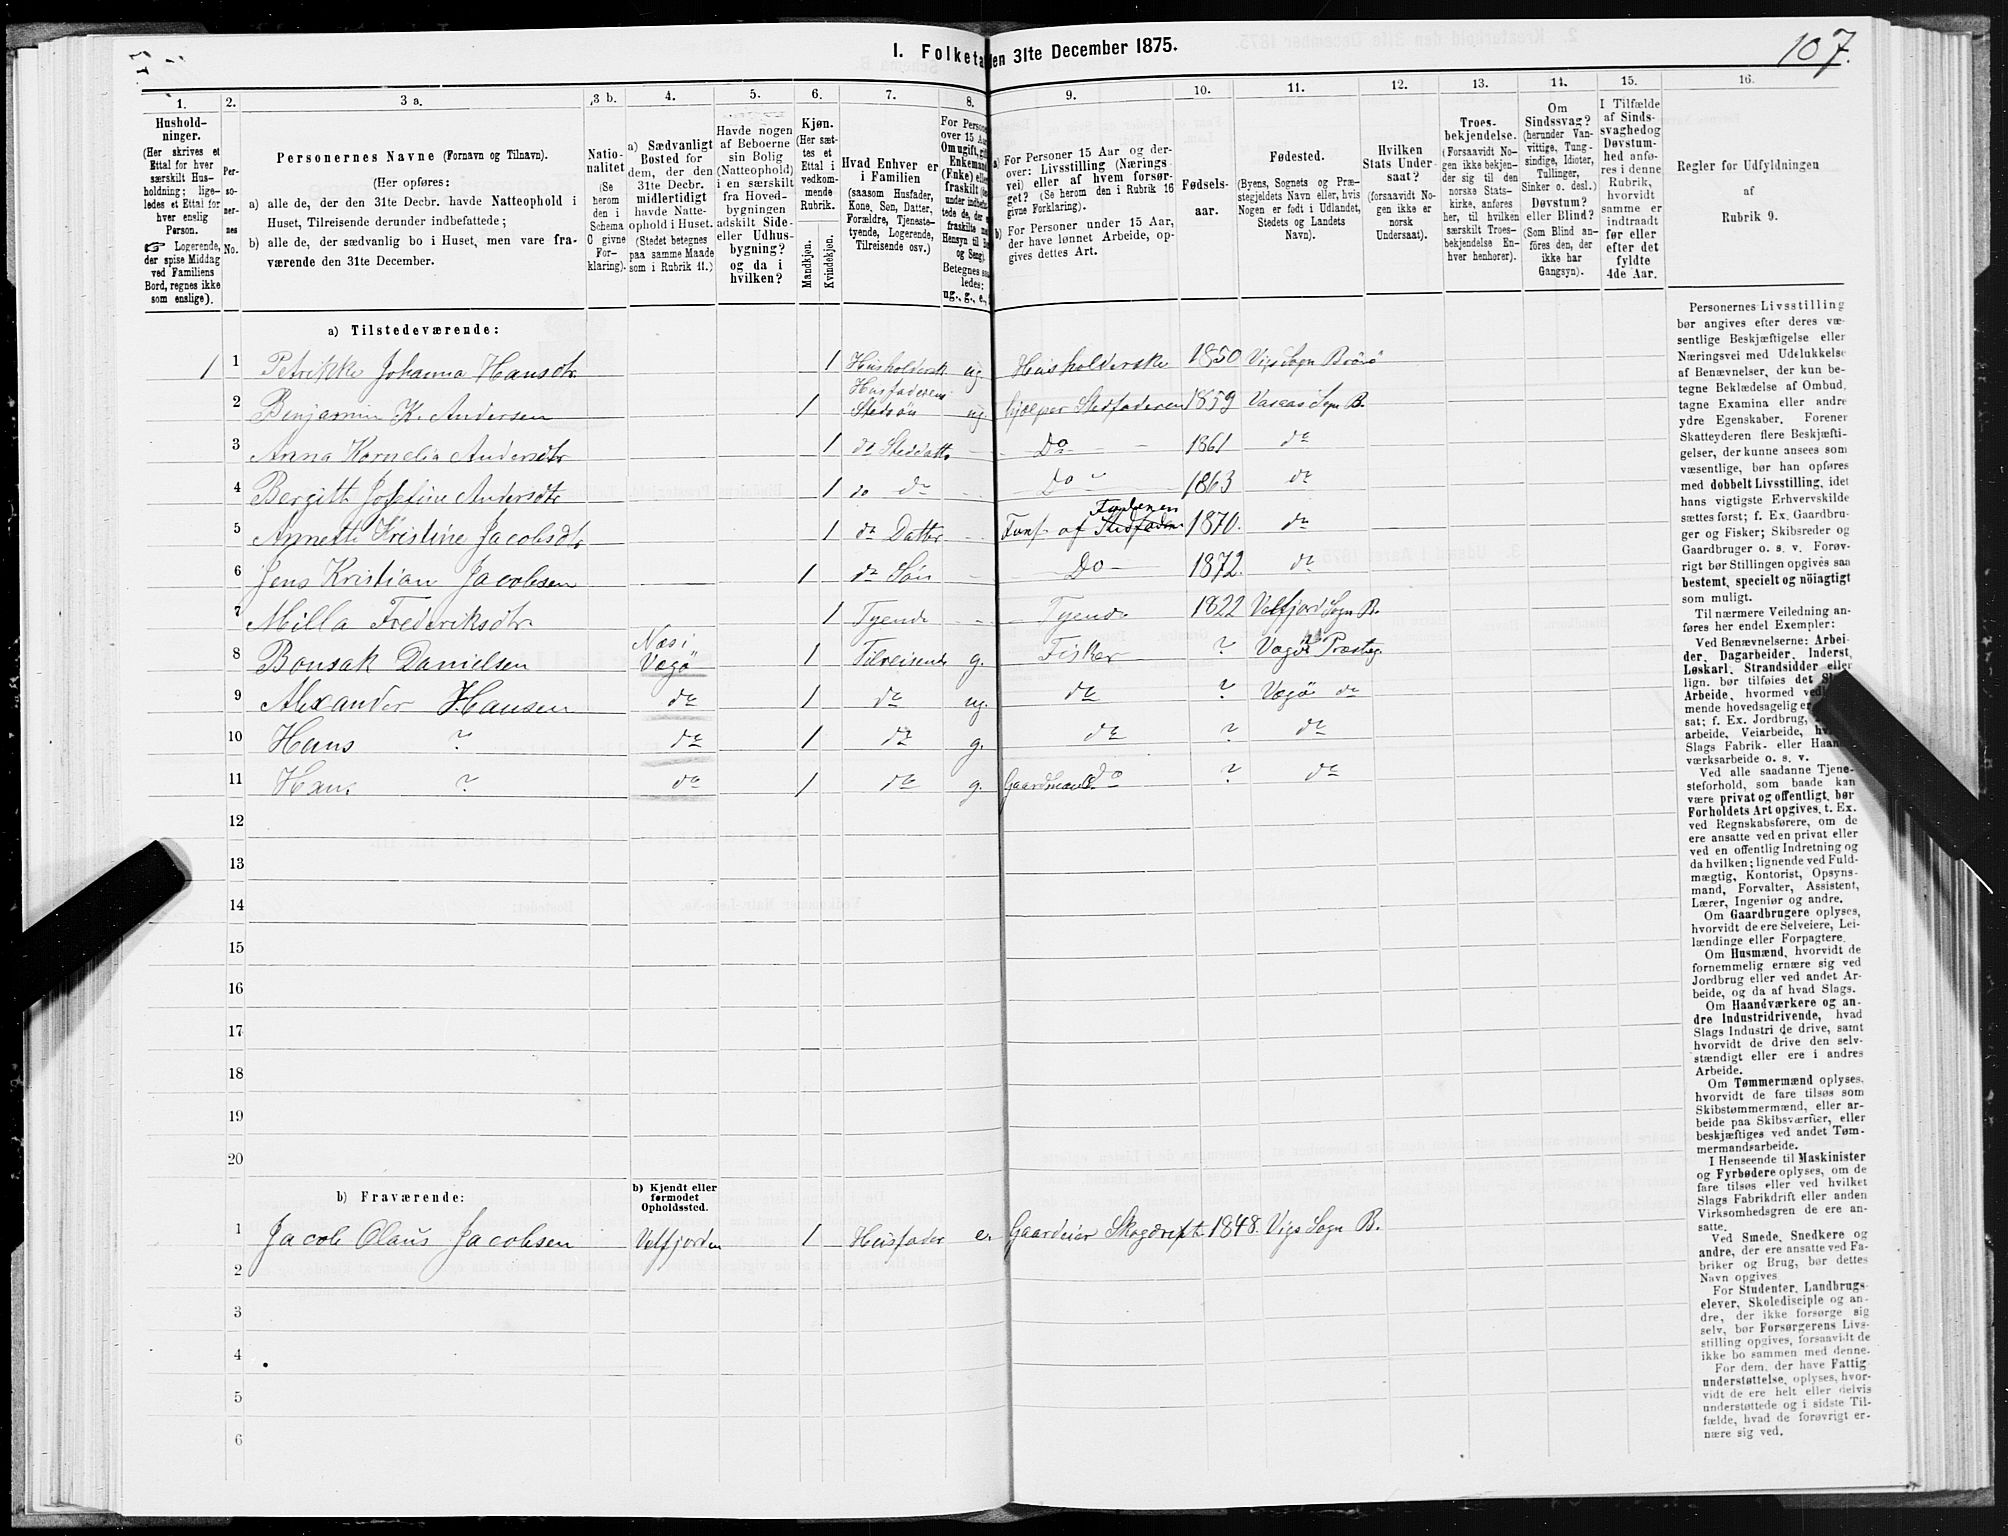 107.
I. Folketa
en 31te December 1875.
1. 2. 3 a. 3 b. 4. 5. 6. 7. 8. 9. 10. 11. 12. 13. 14. 15. 16.
Hushold-
ninger.
(Her skrives et
Ettal for hver
særskilt Hus-
holdning; lige-
ledes et Ettal for
hver enslig
Person.
☞ Logerende,
der spise Middag
ved Familiens
Bord, regnes ikke
som enslige).
Per-
so-
ner-
nes
No.
Personernes Navne (Fornavn og Tilnavn).
(Her opføres:
a) alle de, der den 31te Decbr. havde Natteophold i
Huset, Tilreisende derunder indbefattede;
b) alle de, der sædvanlig bo i Huset, men vare fra-
værende den 31te December.
Natio-
nalitet
(Se
herom
den i
Schema
C givne
For-
klaring).
a) Sædvanligt
Bosted for
dem, der den
31te Decbr.
midlertidigt
havde Natte-
ophold i Huset.
(Stedet betegnes
paa samme Maade
som i Rubrik 11.)
Havde nogen
af Beboerne
sin Bolig
(Natteophold)
i en særskilt
fra Hoved-
bygningen
adskilt Side-
eller Udhus-
bygning?
og da i
hvilken?
Kjøn.
(Her sæt-
tes et
Ettal i
vedkom-
mende
Rubrik.
Mandkjøn.
Kvindekjøn.
Hvad Enhver er
i Familien
(saasom Husfader,
Kone, Søn, Datter,
Forældre, Tjeneste-
tyende, Logerende,
Tilreisende osv.)
For Persone
over 15 Aa
Om ugift, gi
Enkemand
(Enke) elle
fraskilt
under indbef
tede de, der
fraskilte m
Hensyn til B
og Seng).
Betegnes sa
ledes:
ug., g., e.,
a) For Personer 15 Aar og der-
over: Livsstilling (Nærings
vei) eller af hvem forsør-
get? (Se herom den i Rubrik 16
givne Forklaring).
b) For Personer under 15 Aar,
der have lønnet Arbeide, op-
gives dettes Art.
Fødsels-
aar.
Fødested.
(Byens, Sognets og Præ-
stegjeldets Navn eller, hvis
Nogen er født i Udlandet,
Stedets og Landets
Navn).
Hvilken
Stats Under-
saat?
(forsaavidt No-
gen ikke er
norsk
Undersaat).
Troes-
bekjendelse.
(Forsaavidt No-
gen ikke bekjen-
der sig til den
norske Stats-
kirke, anføres
her, til hvilken
særskilt Troes-
bekjendelse En-
hver henhører).
Om
Sindssvag?
(herunder Van-
vittige, Tung-
sindige, Idioter,
Tullinger,
Sinker o. desl.)
Døvstum?
eller Blind?
(Som Blind an-
føres den, der
ikke har
Gangsyn).
I Tilfælde
af Sinds-
svaghedog
Døvstum-
hed anfø-
res i denne
Rubrik,
hvorvidt
samme er
indtraadt
før eller
efter det
fyldte
4de Aar.
Regler for Udfyldningen
af
Rubrik 9.
a) Tilstedeværende:
1 1 Petrikke Johanna Hansdtr. 1 Husholdersk ug. Husholderske 1850 Vigs Sogn Brönö
2 Benjamin K. Andersen 1 Husfaderens Stedsön ug. hjælper Stedfaderen 1859 Vascas Sogn B.
3 Anna Kornelia Andersdtr 1 do Steddatt. - Do - 1861 do
4 Bergitt Josefine Andersdtr 1 do do - Do 1863 do
5 Annetti Kristine Jacobsdtr 1 do Datter - Fors. af Stedfaderen Faderen 1870. do
6 Jens Kristian Jacobsen 1 do Sön - Do - 1872. do
7 Milla Frederiksdtr. 1 Tyende - Tyende 1822 Velfjord Sogn B.
8 Bonsak Danielsen Næs i Vegö 1 Tilreisende g. Fisker ? Vegö Præsteg.
9 Alexander Hansen do 1 do ug. do ? Vegö do
10 Hans ? do 1 do g. do ? do
11 Hans ? do 1 do g. Gaardmand do ? do
12
13
14
15
16
17
18
19
20
b) Fraværende:
b) Kjendt eller
formodet
Opholdssted.
1 Jacob Olaus Jacobsen Velfjorden 1 Husfader e. Gaardeier Skogdrift 1848. Vigs Sogn B.
2
3
4
5
6
Personernes Livsstilling
bør angives efter deres væ-
sentlige Beskjæftigelse eller
Næringsvei med Udelukkelse
af Benævnelser, der kun be-
tegne Beklædelse af Ombud,
tagne Examina eller andre
ydre Egenskaber. Forener
Skatteyderen flere Beskjæfti-
gelser, der kunne ansees som
væsentlige, bør han opføres
med dobbelt Livsstilling, idet
hans vigtigste Erhvervskilde
sættes først; f. Ex. Gaardbru-
ger og Fisker; Skibsreder og
Gaardbruger o. s. v. Forøv-
rigt bør Stillingen opgives saa
bestemt, specielt og nöiagtigt
som muligt.
Til nærmere Veiledning an-
føres her endel Exempler:
Ved Benævnelserne: Arbei-
der, Dagarbeider, Inderst,
Løskarl, Strandsidder eller
lign. bør tilføies det
Arbeide, hvormed
mende hovedsagelig er
sat; f. Ex. Jordbrug,
arbeide, Veiarbeide,
Slags Fabrik- eller Haand
værksarbeide o. s. v.
Ved alle saadanne Tjene-
steforhold, som baade kan
være privat og offentligt, bør
Forholdets Art opgives, t. Ex.
ved Regnskabsførere, om de
ere ansatte ved en privat eller
ved en offentlig Indretning og
da hvilken; lignende ved Fuld-
mægtig, Kontorist, Opsyns-
mand, Forvalter, Assistent,
Lærer, Ingeniør og andre.
Om Gaardbrugere oplyses,
hvorvidt de ere Selveiere, Lei-
lændinge eller Forpagtere.
Om Husmænd, hvorvidt de
fornemmelig ernære sig ved
Jordbrug eller ved andet Ar-
beide, og da af hvad Slags.
Om Haandværkere og an-
dre Industridrivende, hvad
Slags Industri de drive, samt
hvorvidt de drive den selv-
stændigt eller ere i andres
Arbeide.
Om Tømmermænd oplyses,
hvorvidt de fare tilsøs som
Skibstømmermænd, eller ar-
beide paa Skibsværfter, eller
beskjæftiges ved andet Tøm-
mermandsarbeide.
I Henseende til Maskinister
og Fyrbødere oplyses, om de
fare tilsøs eller ved hvilket
Slags Fabrikdrift eller anden
Virksomhedsgren de ere an-
satte.
Ved Smede, Snedkere og
andre, der ere ansatte ved Fa-
briker og Brug, bør dettes
Navn opgives.
For Studenter, Landbrugs-
elever, Skoledisciple og an-
dre, der ikke forsørge sig
selv, bør Forsørgerens Livs-
stilling opgives, forsaavidt de
ikke bo sammen med denne.
For dem, der have Fattig
understøttelse, oplyses, hvor-
vidt de ere helt eller delvis
understøttede og i sidste Til-
fælde, hvad de forøvrigt er-
nære sig ved.